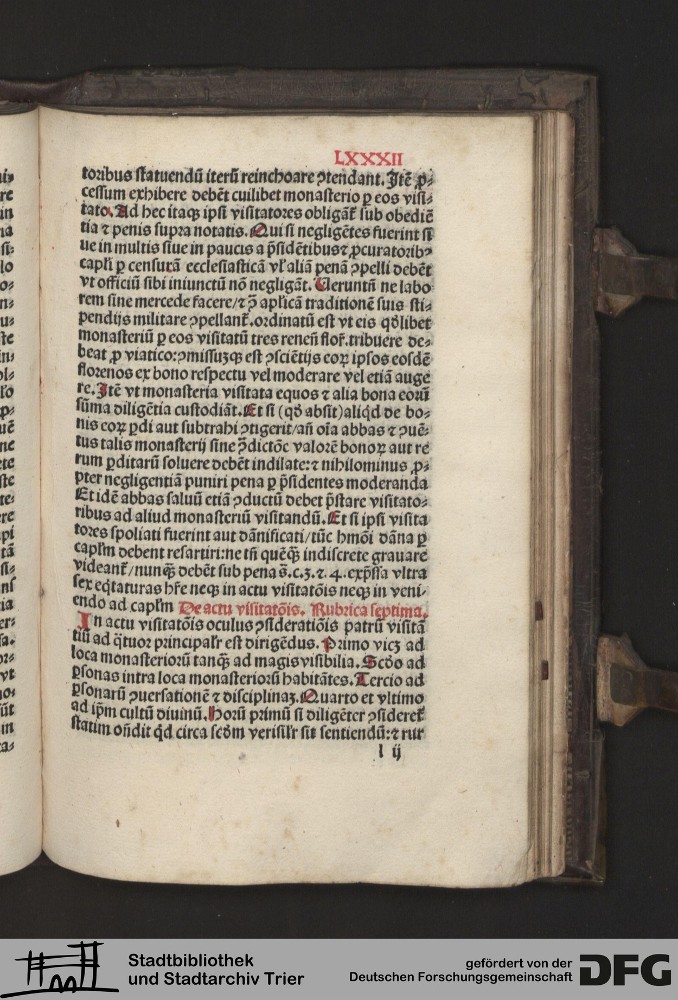 LXXXII
toribus statuendū iterū reinchoare ꝯtendant. Itē ꝓ⸗
cessum exhibere debēt cuilibet monasterio ꝑ eos visi⸗
tato. Ad hec itaqꝫ ipsi visitatores obligāt᷑ sub obediē
tia ⁊ penis supra notatis. Qui si negligētes fuerint si
ue in multis siue in paucis a p̄sidētibus ⁊ ꝓcuratoribꝰ
capl̄i ꝑ censurā ecclesiasticā vl̓ aliā penā ꝯpelli debēt
vt officiū sibi iniunctū nō negligāt. Ueruntn̄ ne labo
rem sine mercede facere/⁊ ꝯ̄ apl̓icā traditionē suis sti⸗
pendijs militare ꝯpellant᷑. ordinatū est vt eis qd̓libet
monasteriū ꝑ eos visitatū tres renen̄ flor̄. tribuere de⸗
beat ꝓ viatico: ꝯmissuꝫqꝫ est ꝯsciētijs eoꝝ ipsos eosdē
florenos ex bono respectu vel moderare vel etiā auge
re. Itē vt monasteria visitata equos ⁊ alia bona eorū
sūma diligētia custodiāt. Et si (qd̓ absit) aliqd̓ de bo⸗
nis eoꝝ ꝑdi aut subtrahi ꝯtigerit/ an̄ oīa abbas ⁊ ꝯuē⸗
tus talis monasterij sine ꝯ̄dictōe valorē bonoꝝ aut re
rum ꝑditarū soluere debēt indilate: ⁊ nihilominus ꝓ⸗
pter negligentiā puniri pena ꝑ p̄sidentes moderanda
Et idē abbas saluū etiā ꝯductū debet p̄stare visitato⸗
ribus ad aliud monasteriū visitandū. Et si ipsi visita
tores spoliati fuerint aut dānificati/ tūc hmōi dāna ꝑ
capl̄m debent resartiri: ne tn̄ quēqꝫ indiscrete grauare
videant᷑/ nunqꝫ debēt sub pena s̄. c. 3. ⁊. 4. exp̄ssa vltra
sex eq̇taturas hr̄e neqꝫ in actu visitatōis neqꝫ in veni⸗
endo ad capl̄m De actu visitatōis. Rubrica septima.
In actu visitatōis oculus ꝯsideratiōis patrū visitā
tiū ad q̇tuor principalr̄ est dirigēdus. Primo vicꝫ ad
loca monasteriorū tanqꝫ ad magis visibilia. Scd̓o ad
ꝑsonas intra loca monasteriorū habitātes. Tercio ad
ꝑsonarū ꝯuersationē ⁊ disciplinaꝫ. Quarto et vltimo
ad ip̄m cultū diuinū. Horū primū si diligēter ꝯsideret᷑
statim on̄dit qd̓ circa scd̓m verisilr̄ sit sentiendū: ⁊ rur
l ij
Stadtbibliothek
und Stadtarchiv Trier
gefördert von der
Deutschen Forschungsgemeinschaft
DFG